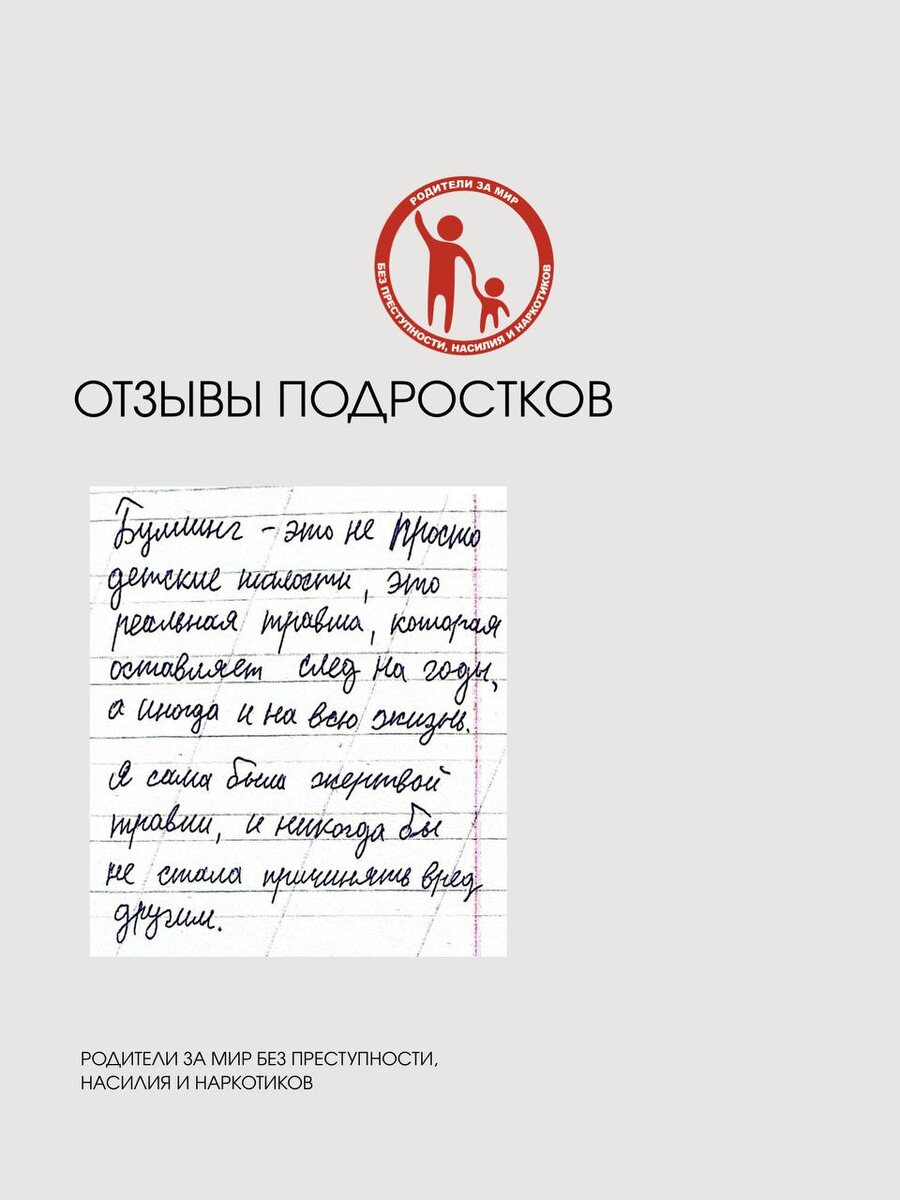 РОДИТЕЛИ ЗА МИР
БЕЗ ПРЕСТУПНОСТИ, НАСИЛИЯ И НАРКОТИКОВ
ОТЗЫВЫ ПОДРОСТКОВ
Буллинг - это не просто
детские шалости, это
реальная травма, которая
оставляет след на годы,
а иногда и на всю жизнь.
Я сама была жертвой
травли, и никогда бы
не стала причинять вред
другим.
РОДИТЕЛИ ЗА МИР БЕЗ ПРЕСТУПНОСТИ,
НАСИЛИЯ И НАРКОТИКОВ